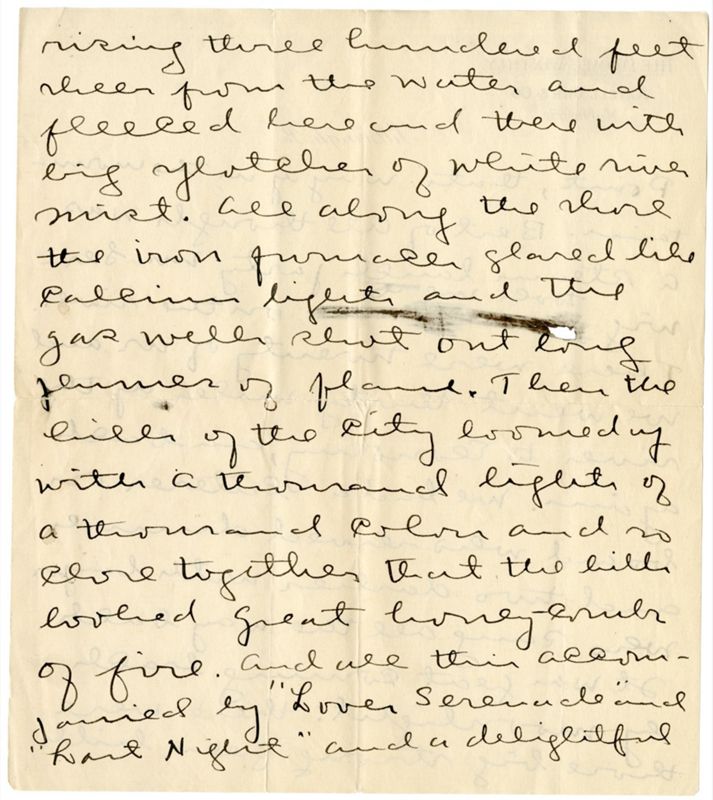 rising three hundered feet
sheer from the water and
fleeced here and there with
big splotches of white river
mist. All along the shore
the iron furnaces glared like
calcium lights and the
gas wells shot out long
plumes of flame. Then the
hills of the city loomed up
with a thousand lights of
a thousand colors and so
close together that the hills
looked great honey-combs
of fire. And all this accom-
panied by "Loves Serenade" and
"Last Night" and a delightful